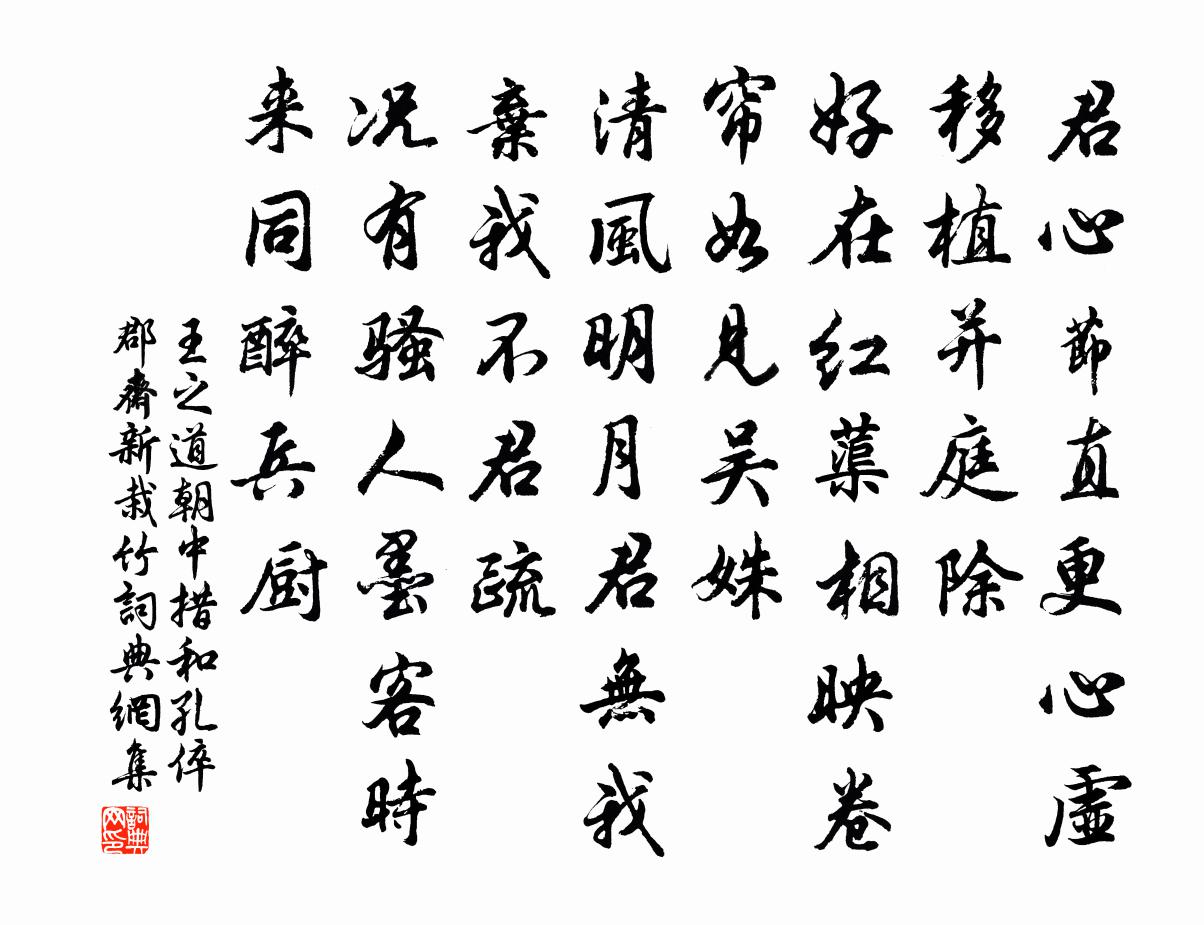 君心節直更心虛
移植并庭除
好在红蕖相映卷
帘如見吴姝
清風明月君無我
棄我不君疏
况有骚人墨客時
来同醉兵厨
王之道朝中措和孔倅
郡齋新栽竹詞典網集
詞典
网印